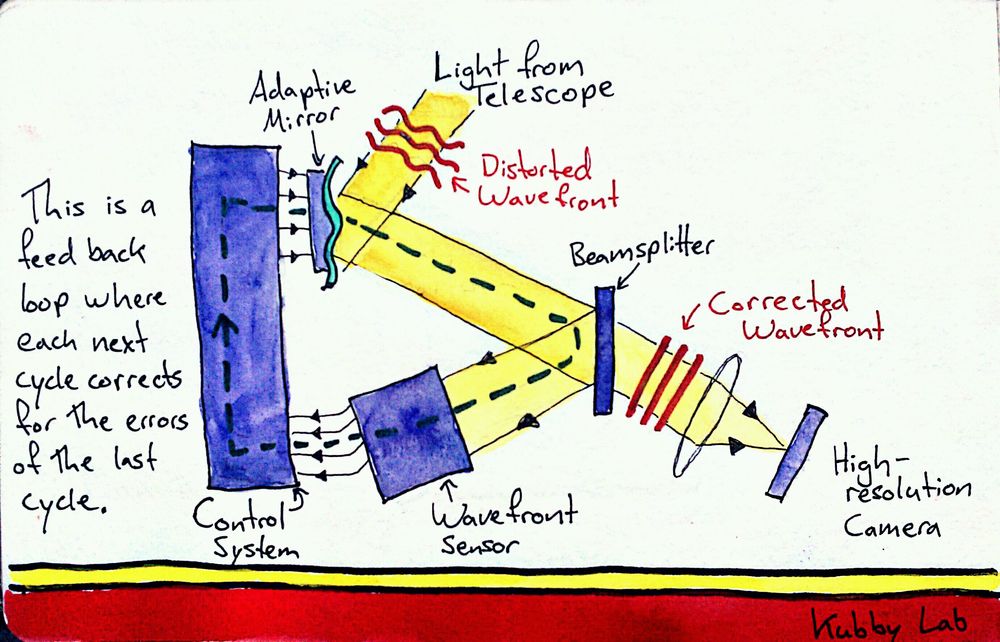 Light from
Telescope
Adaptive
Mirror
Distorted
Wavefront
This is a
feed back
loop where
each next
cycle corrects
for the errors
of the last
cycle.
Beamsplitter
Corrected
Wavefront
High-
resolution
Camera
Control
System
Wavefront
Sensor
Kubby Lab